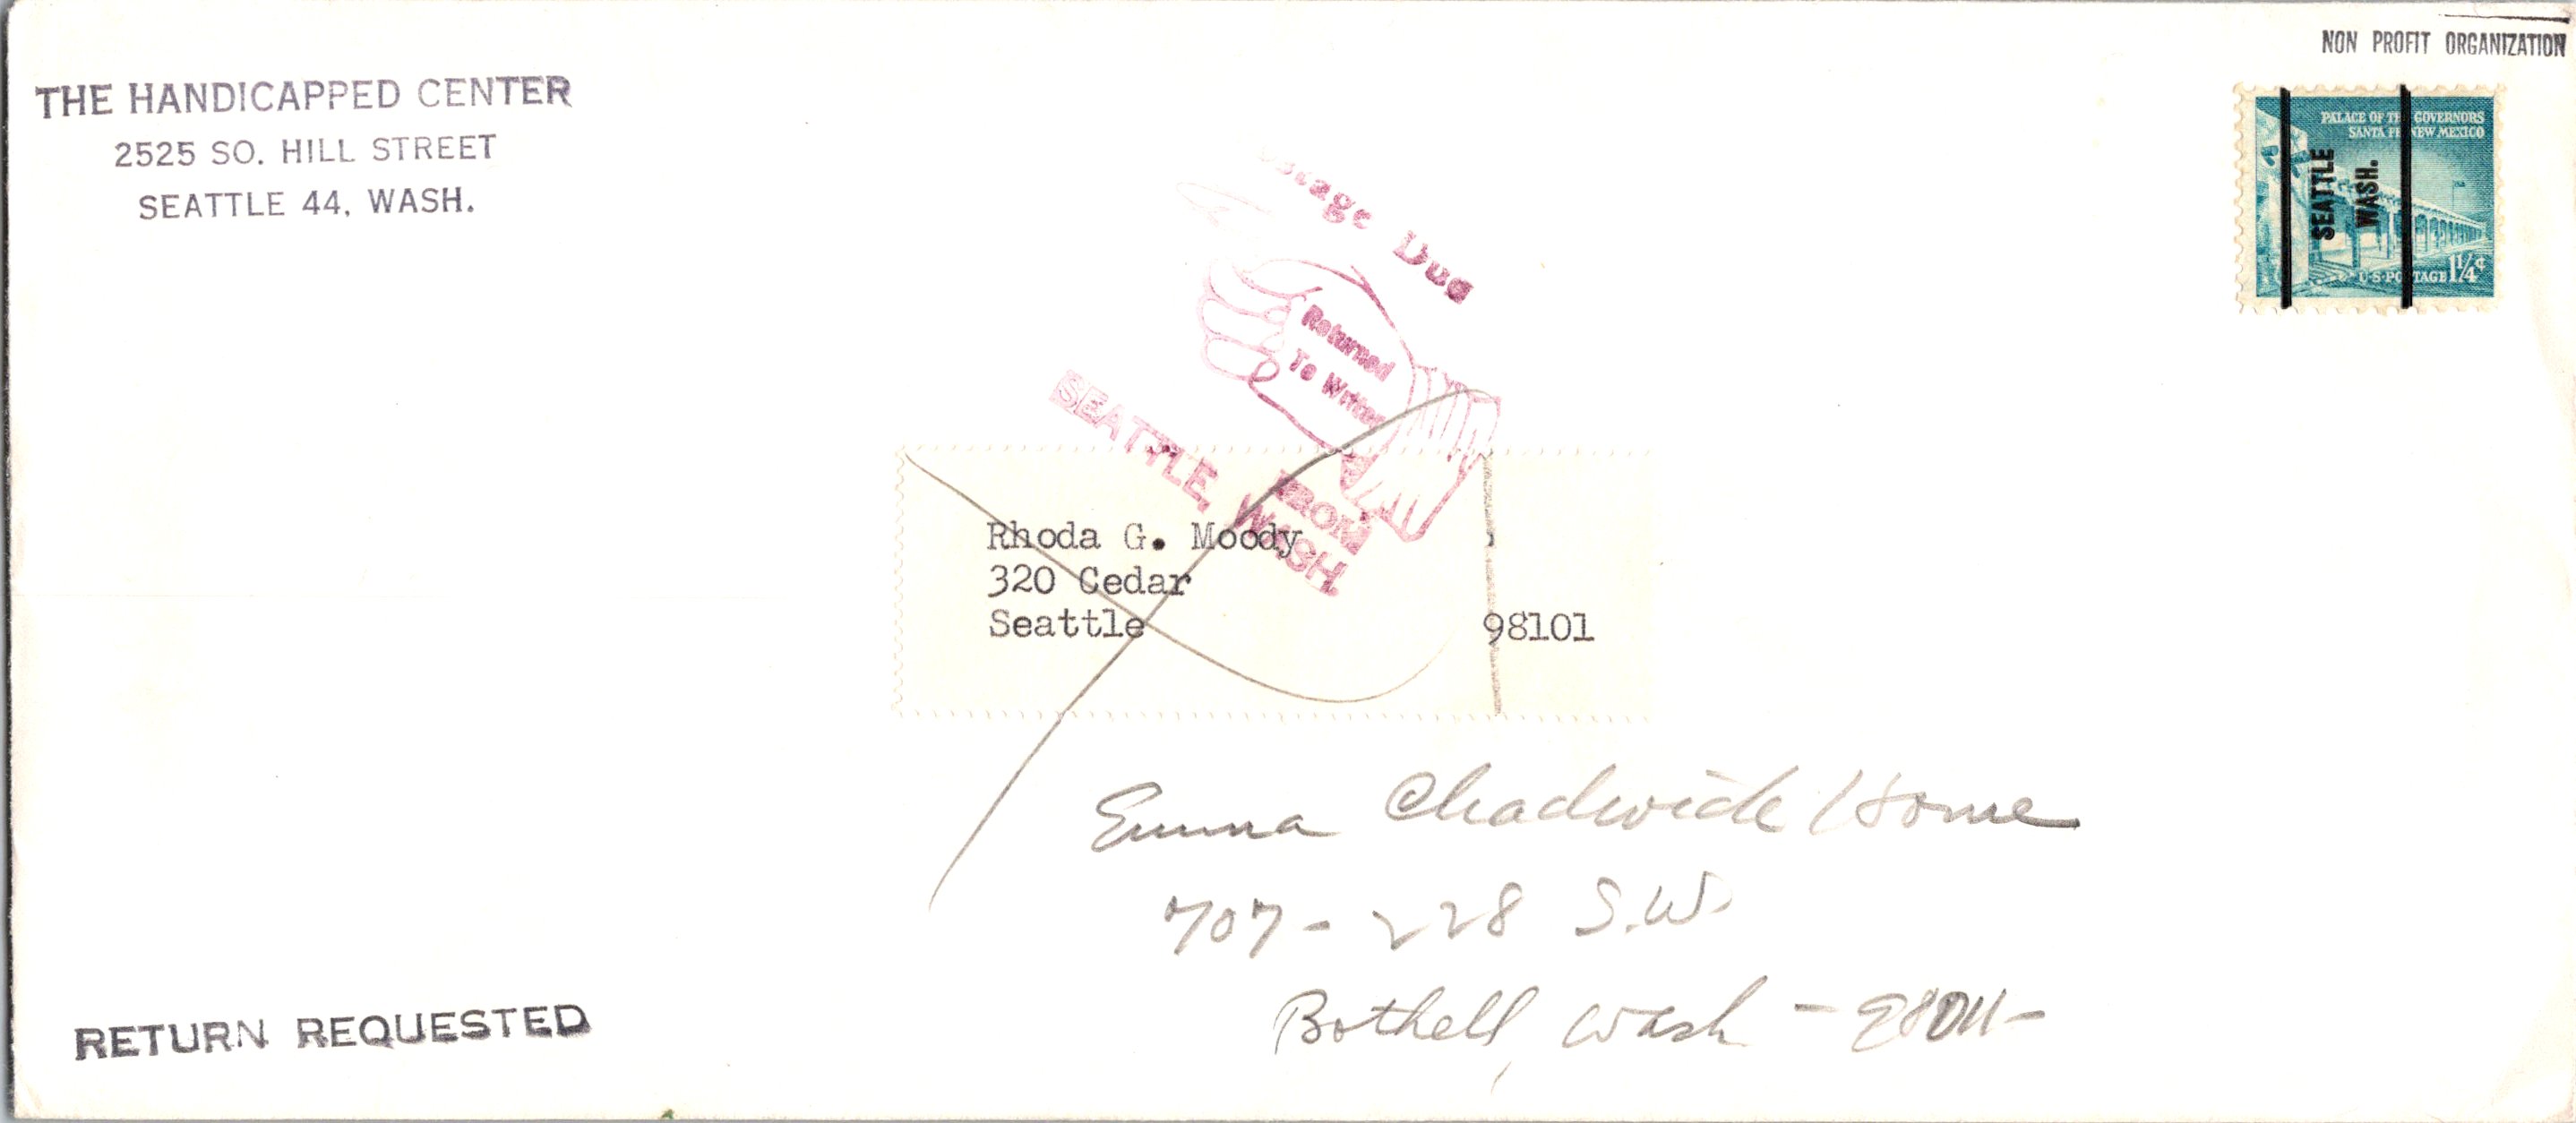 THE HANDICAPPED CENTER
2525 SO. HILL STREET
SEATTLE 44, WASH.
NON PROFIT ORGANIZATION
PALACE OF THE GOVERNORS
SANTA FE NEW MEXICO
SEATTLE
WASH.
U·S·POSTAGE 1¼¢
Postage Due
Returned
To Writer
FROM
SEATTLE, WASH.
Rhoda G. Moody
320 Cedar
Seattle 98101
Emma Chadwick Home
707 - 228 S.W.
Bothell, Wash - 98011 -
RETURN REQUESTED